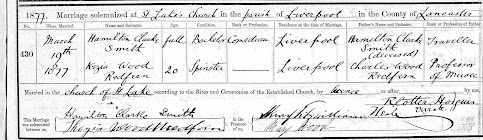 1877. Marriage solemnized at St Luke's Church in the parish of Liverpool in the County of Lancaster
No. When Married. Name and Surname. Age. Condition. Rank or Profession. Residence at the time of Marriage. Father's Name and Surname. Rank or Profession of Father.
430 March 19th 1877 Hamilton Clarke Smith full Bachelor Comedian Liverpool Hamilton Clarke Smith (deceased) Traveller
Kezia Wood Redfern 20 Spinster Liverpool Charles Wood Redfern Professor of Music
Married in the church of St Luke according to the Rites and Ceremonies of the Established Church, by licence by me,
This Marriage was solemnized between us, Hamilton Clarke Smith
in the Presence of us, Mary